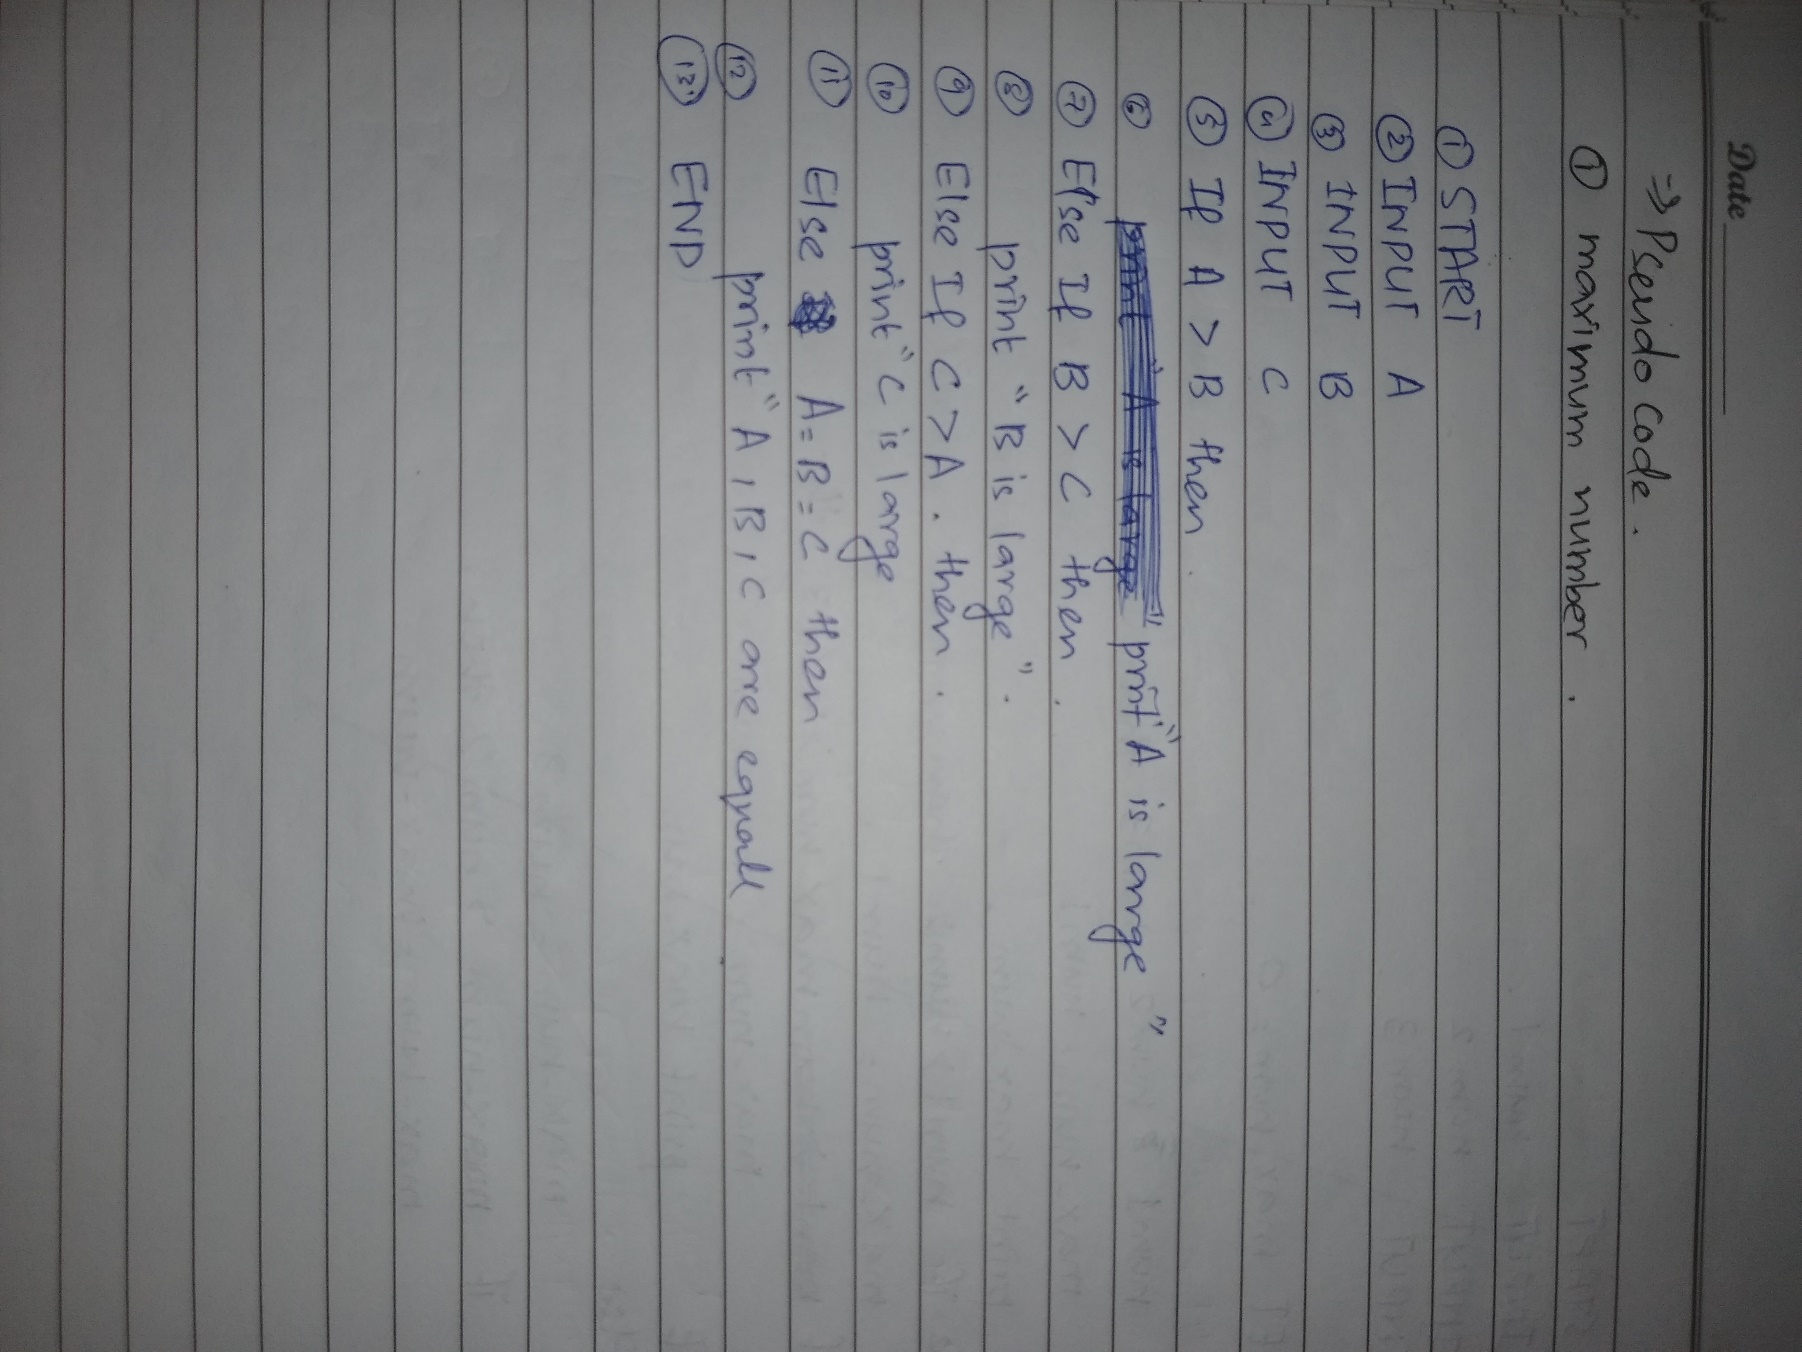 Date
⇒ Pseudo code.
① maximum number.
① START
② INPUT A
③ INPUT B
④ INPUT C
⑤ If A > B then.
⑥ print "A is large" print "A is large"
⑦ Else If B > C then.
⑧ print "B is large".
⑨ Else If C > A. then.
⑩ print "C is large
⑪ Else A = B = C then
⑫ print "A, B, C are equall
⑬ END